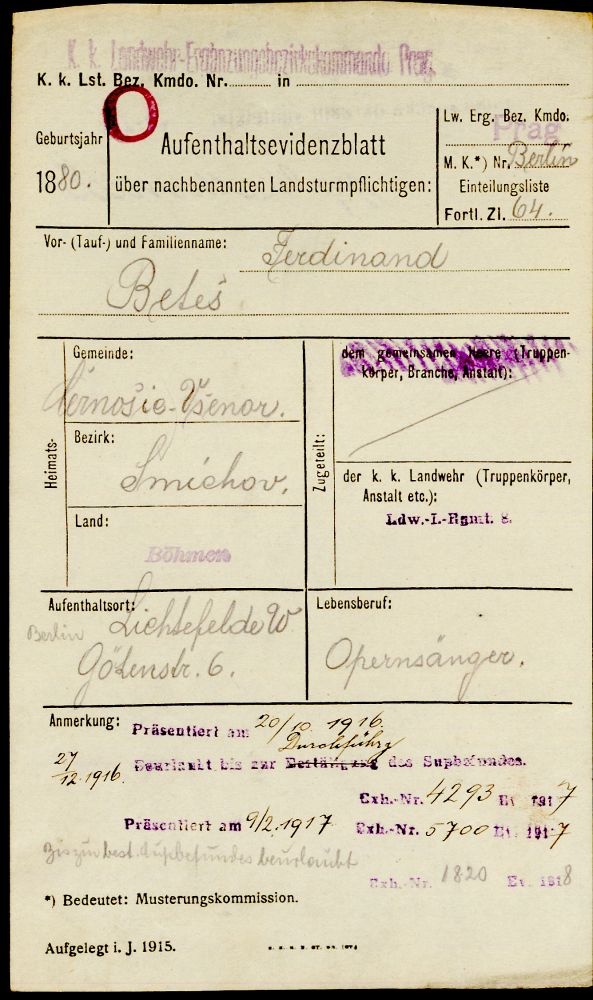 K. k. Landwehr-Ergänzungsbezirkskommando Prag.
K. k. Lst. Bez. Kmdo. Nr. in
O
Geburtsjahr
1880.
Aufenthaltsevidenzblatt
über nachbenannten Landsturmpflichtigen:
Lw. Erg. Bez. Kmdo.
Prag
M. K.*) Nr. Berlin
Einteilungsliste
Fortl. Zl. 64.
Vor- (Tauf-) und Familienname: Ferdinand
Beteš
Heimats-
Gemeinde:
Černošic-Všenor.
Bezirk:
Smíchov.
Land:
Böhmen
Zugeteilt:
dem gemeinsamen Heere (Truppen-
körper, Branche, Anstalt):
der k. k. Landwehr (Truppenkörper,
Anstalt etc.):
Ldw.-I.-Rgmt. 8.
Aufenthaltsort: Lichtefelde W
Berlin
Götenstr. 6.
Lebensberuf:
Opernsänger.
Anmerkung: Präsentiert am 20/10 1916.
Durchführg
27/12.1916. Beurlaubt bis zur Bestätigung des Supbefundes.
Exh.-Nr. 4293 Ev 1917
Präsentiert am 9/2.1917 Exh.-Nr. 5700 Ev. 1917
Bis zum best. Supbefundes beurlaubt
Exh.-Nr. 1820 Ev. 1918
*) Bedeutet: Musterungskommission.
Aufgelegt i. J. 1915.